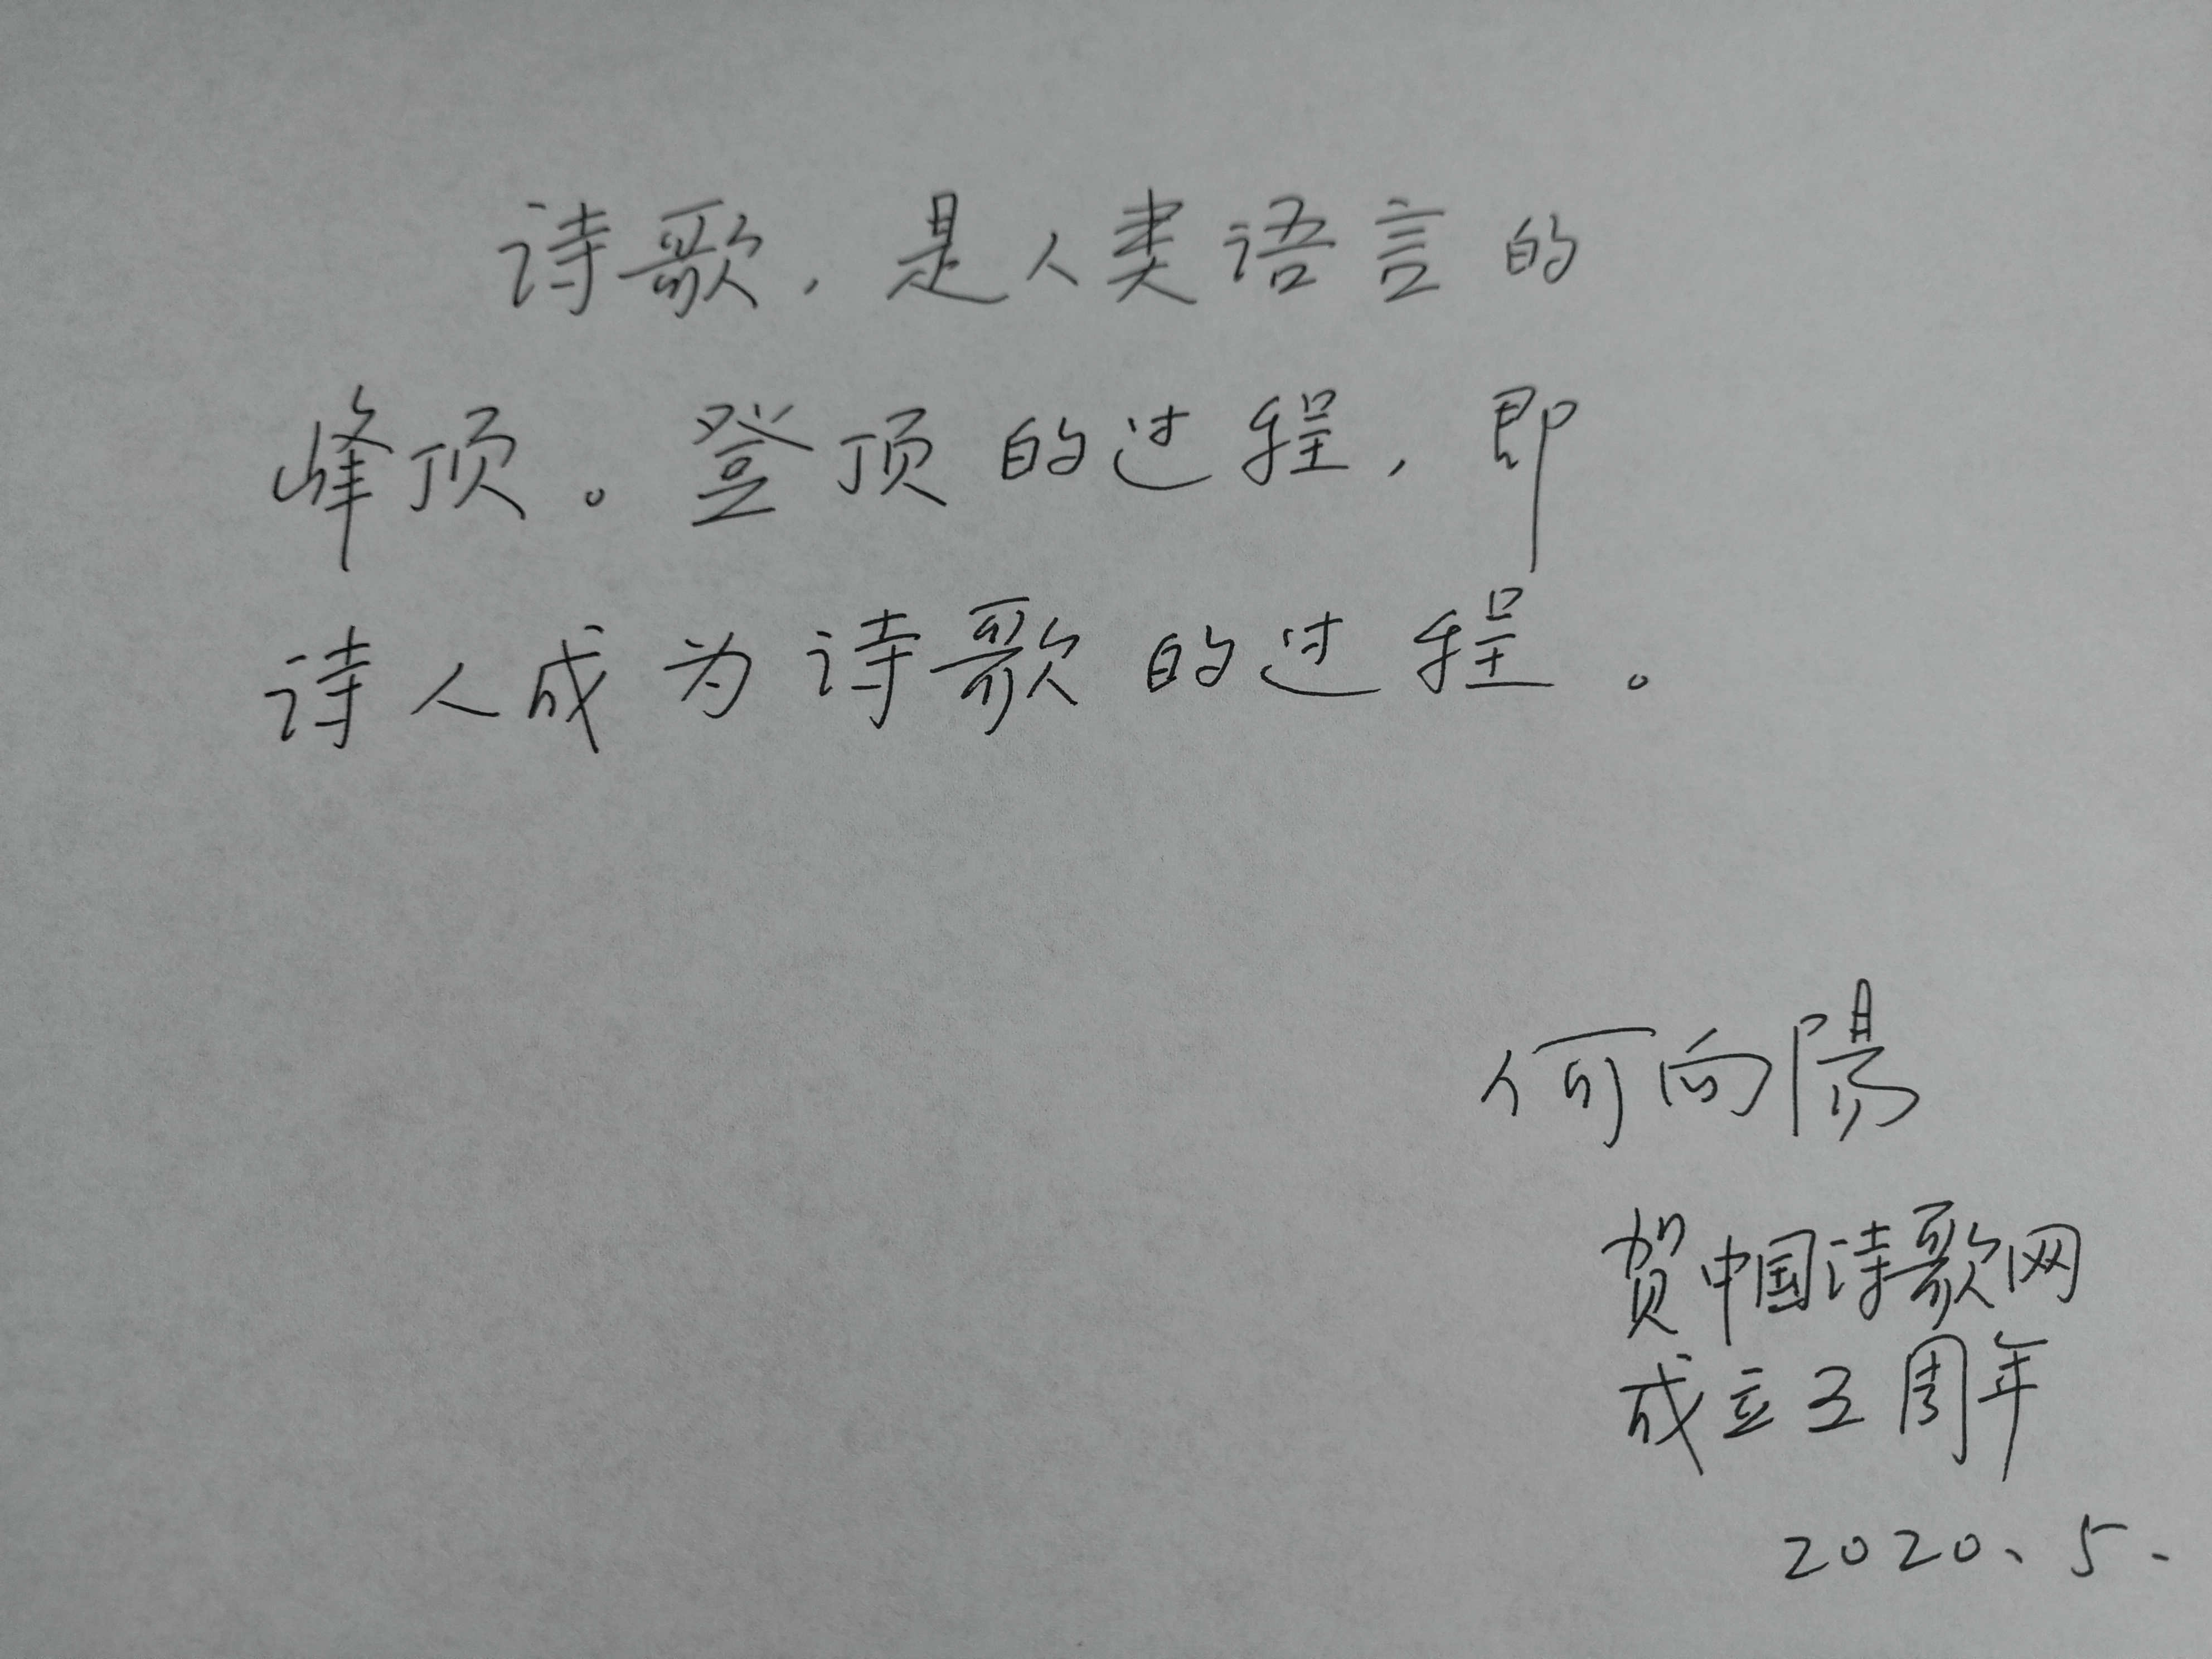 诗歌，是人类语言的
峰顶。登顶的过程，即
诗人成为诗歌的过程。
何向陽
贺中国诗歌网
成立五周年
2020、5、